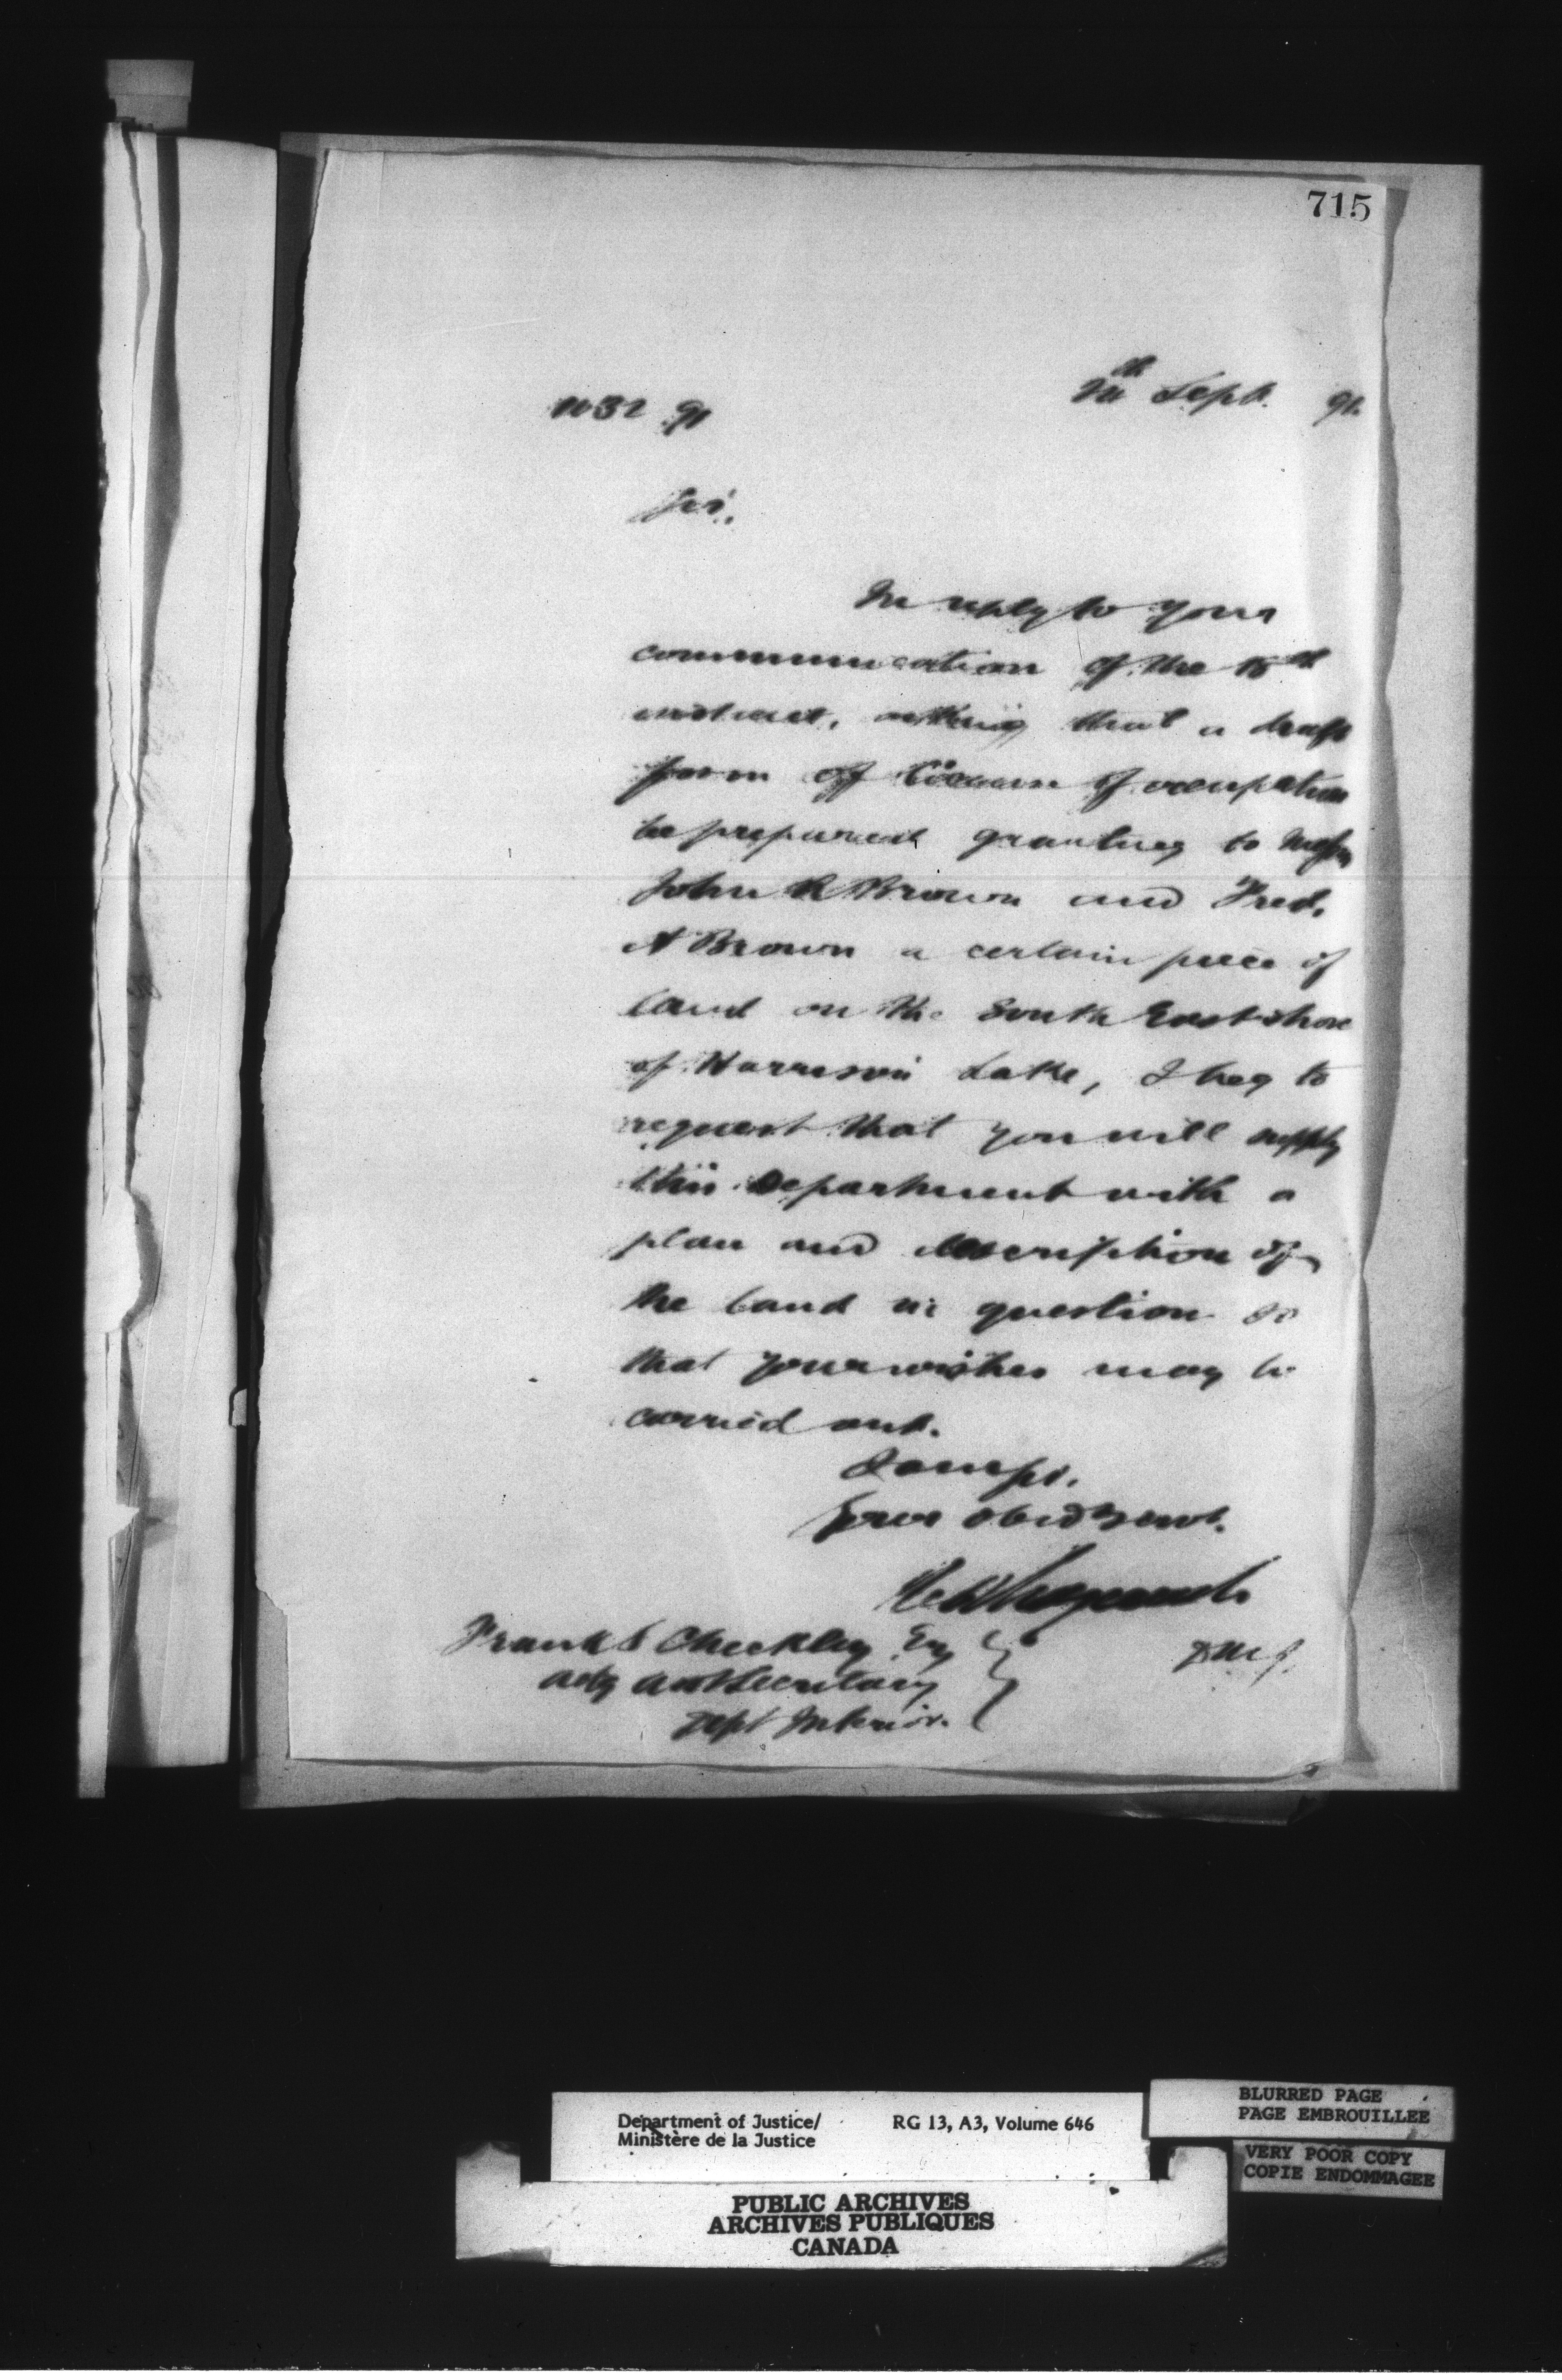 715
Sept. 91.
1132 91
Sir,
In reply to your
communication of the 15th
instant, asking that a draft
form of license of occupation
be prepared granting to Messrs
John R Brown and Fred.
A Brown a certain piece of
land on the South East shore
of Harrison Lake, I beg to
request that you will supply
this Department with a
plan and description of
the land in question so
that your wishes may be
carried out.
I am Sir,
Your obed Servt.
D M J.
Frank S Checkley Esq
actg asst Secretary
Dept Interior.
Department of Justice/
Ministère de la Justice
RG 13, A3, Volume 646
BLURRED PAGE
PAGE EMBROUILLEE
VERY POOR COPY
COPIE ENDOMMAGEE
PUBLIC ARCHIVES
ARCHIVES PUBLIQUES
CANADA